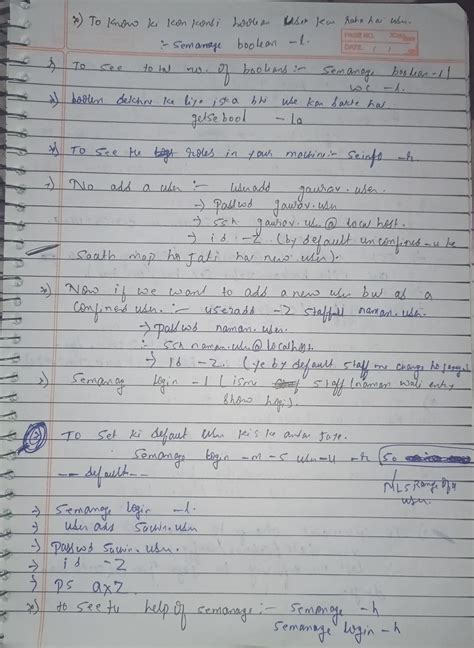 *) To know ki kon konsi boolean user kar raha hai user.
:- semanage boolean -l.
PAGE NO.
DATE: / /
*) To see total no. of booleans :- semanage boolean -l |
wc -l.
*) boolean dekhne ke liye isko bhi use kar sakte hai
getsebool -la
*) To see the roles in your machine :- seinfo -r
*) No add a user :- useradd gaurav.user
-> passwd gaurav.user
-> ssh gaurav.u @ localhost.
-> id -Z (by default unconfined-u ke
saath map ho jati hai new user).
*) Now if we want to add a new user but as a
confined user. :- useradd -Z staff_u naman.user.
-> passwd naman.user.
:- ssh naman.u @ localhost
-> id -Z. (ye by default staff me change ho jayegi
*) Semanag login -l (isme staff (naman wali entry
show hogi).
To set ki default user kiske andar jaye.
semanage login -m -s user-u -r s0
-- default --
MLS Range of a
user.
-> semanage login -l.
-> user add sachin.user
-> passwd sachin.user.
-> id -Z
-> ps axZ
*) to see the help of semanage :- semanage -h
semanage login -h